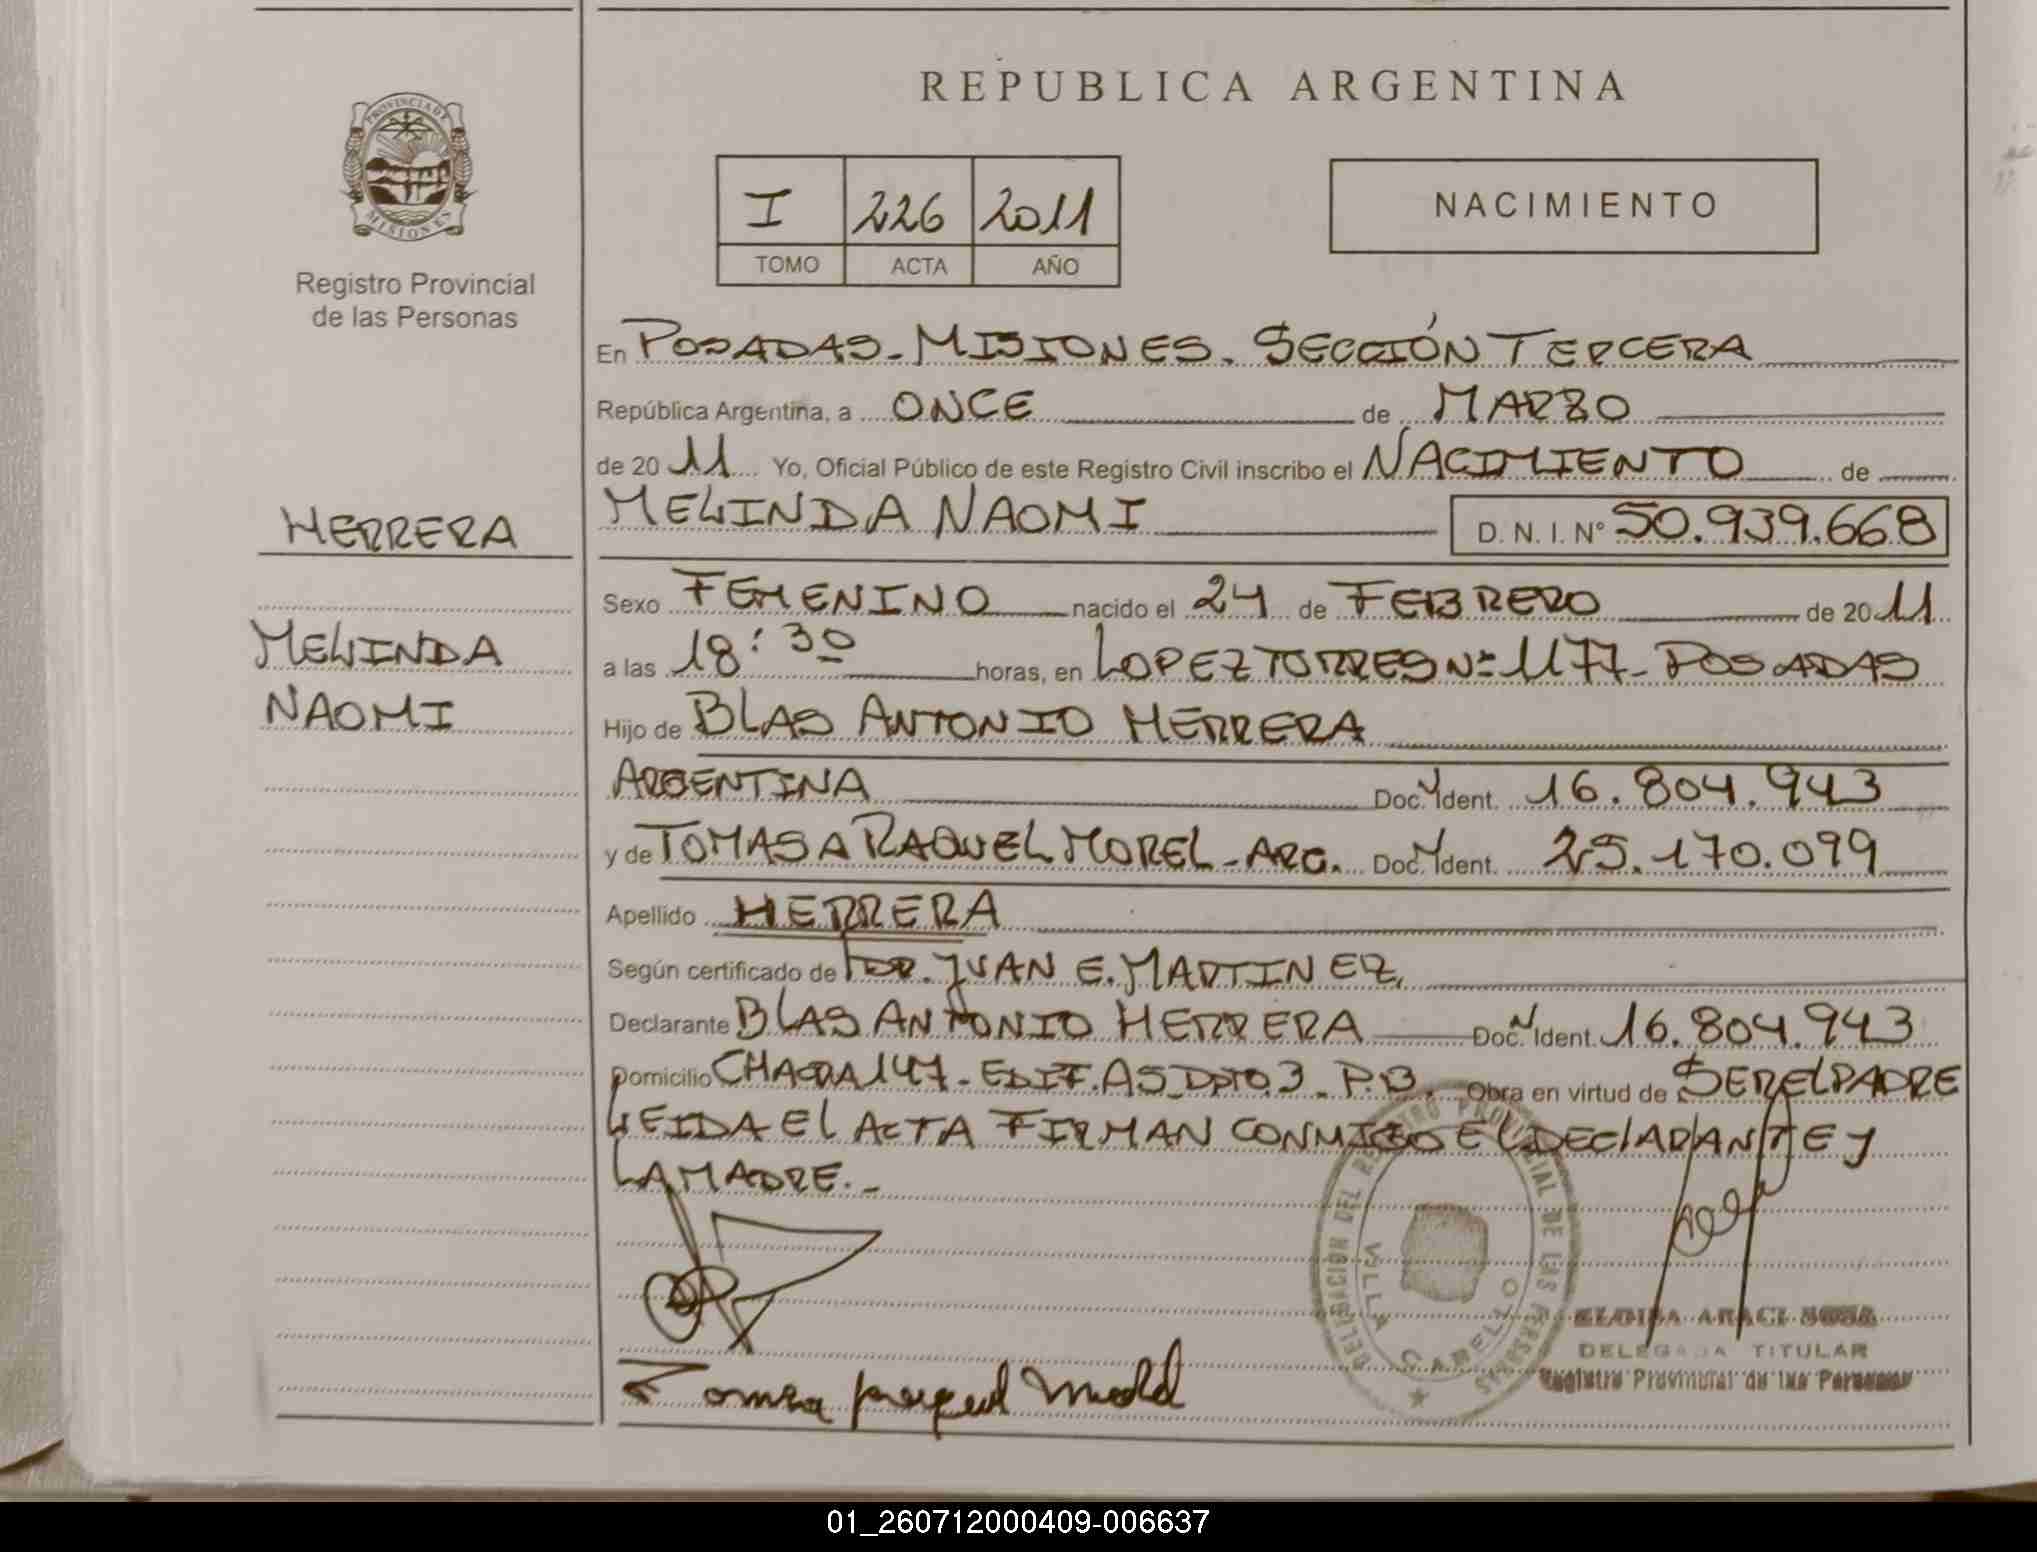 REPUBLICA ARGENTINA
PROVINCIA DE
MISIONES
Registro Provincial
de las Personas
I 226 2011
TOMO ACTA AÑO
NACIMIENTO
En POSADAS-MISIONES. SECCIÓN TERCERA
República Argentina, a ONCE de MARZO
de 20 11 Yo, Oficial Público de este Registro Civil inscribo el NACIMIENTO de
MELINDA NAOMI D. N. I. N° 50.939.668
HERRERA
MELINDA
NAOMI
Sexo FEMENINO nacido el 24 de FEBRERO de 20 11
a las 18:30 horas, en LOPEZ TORRES Nº 1177-POSADAS
Hijo de BLAS ANTONIO HERRERA
ARGENTINA Doc. N Ident. 16.804.943
y de TOMASA RAQUEL MOREL-ARG. Doc. N Ident. 25.170.099
Apellido HERRERA
Según certificado de DR. JUAN E. MARTINEZ,
Declarante BLAS ANTONIO HERRERA Doc. N Ident. 16.804.943
Domicilio CHACRA 147-EDIF. A5 DPTO.3-P.B. Obra en virtud de SER EL PADRE
LEIDA EL ACTA FIRMAN CONMIGO EL DECLARANTE Y
LA MADRE.-
DELEGACION DEL REGISTRO PROVINCIAL DE LAS PERSONAS
VILLA CABELLO
DELEGADA TITULAR
Registro Provincial de las Personas
01_260712000409-006637